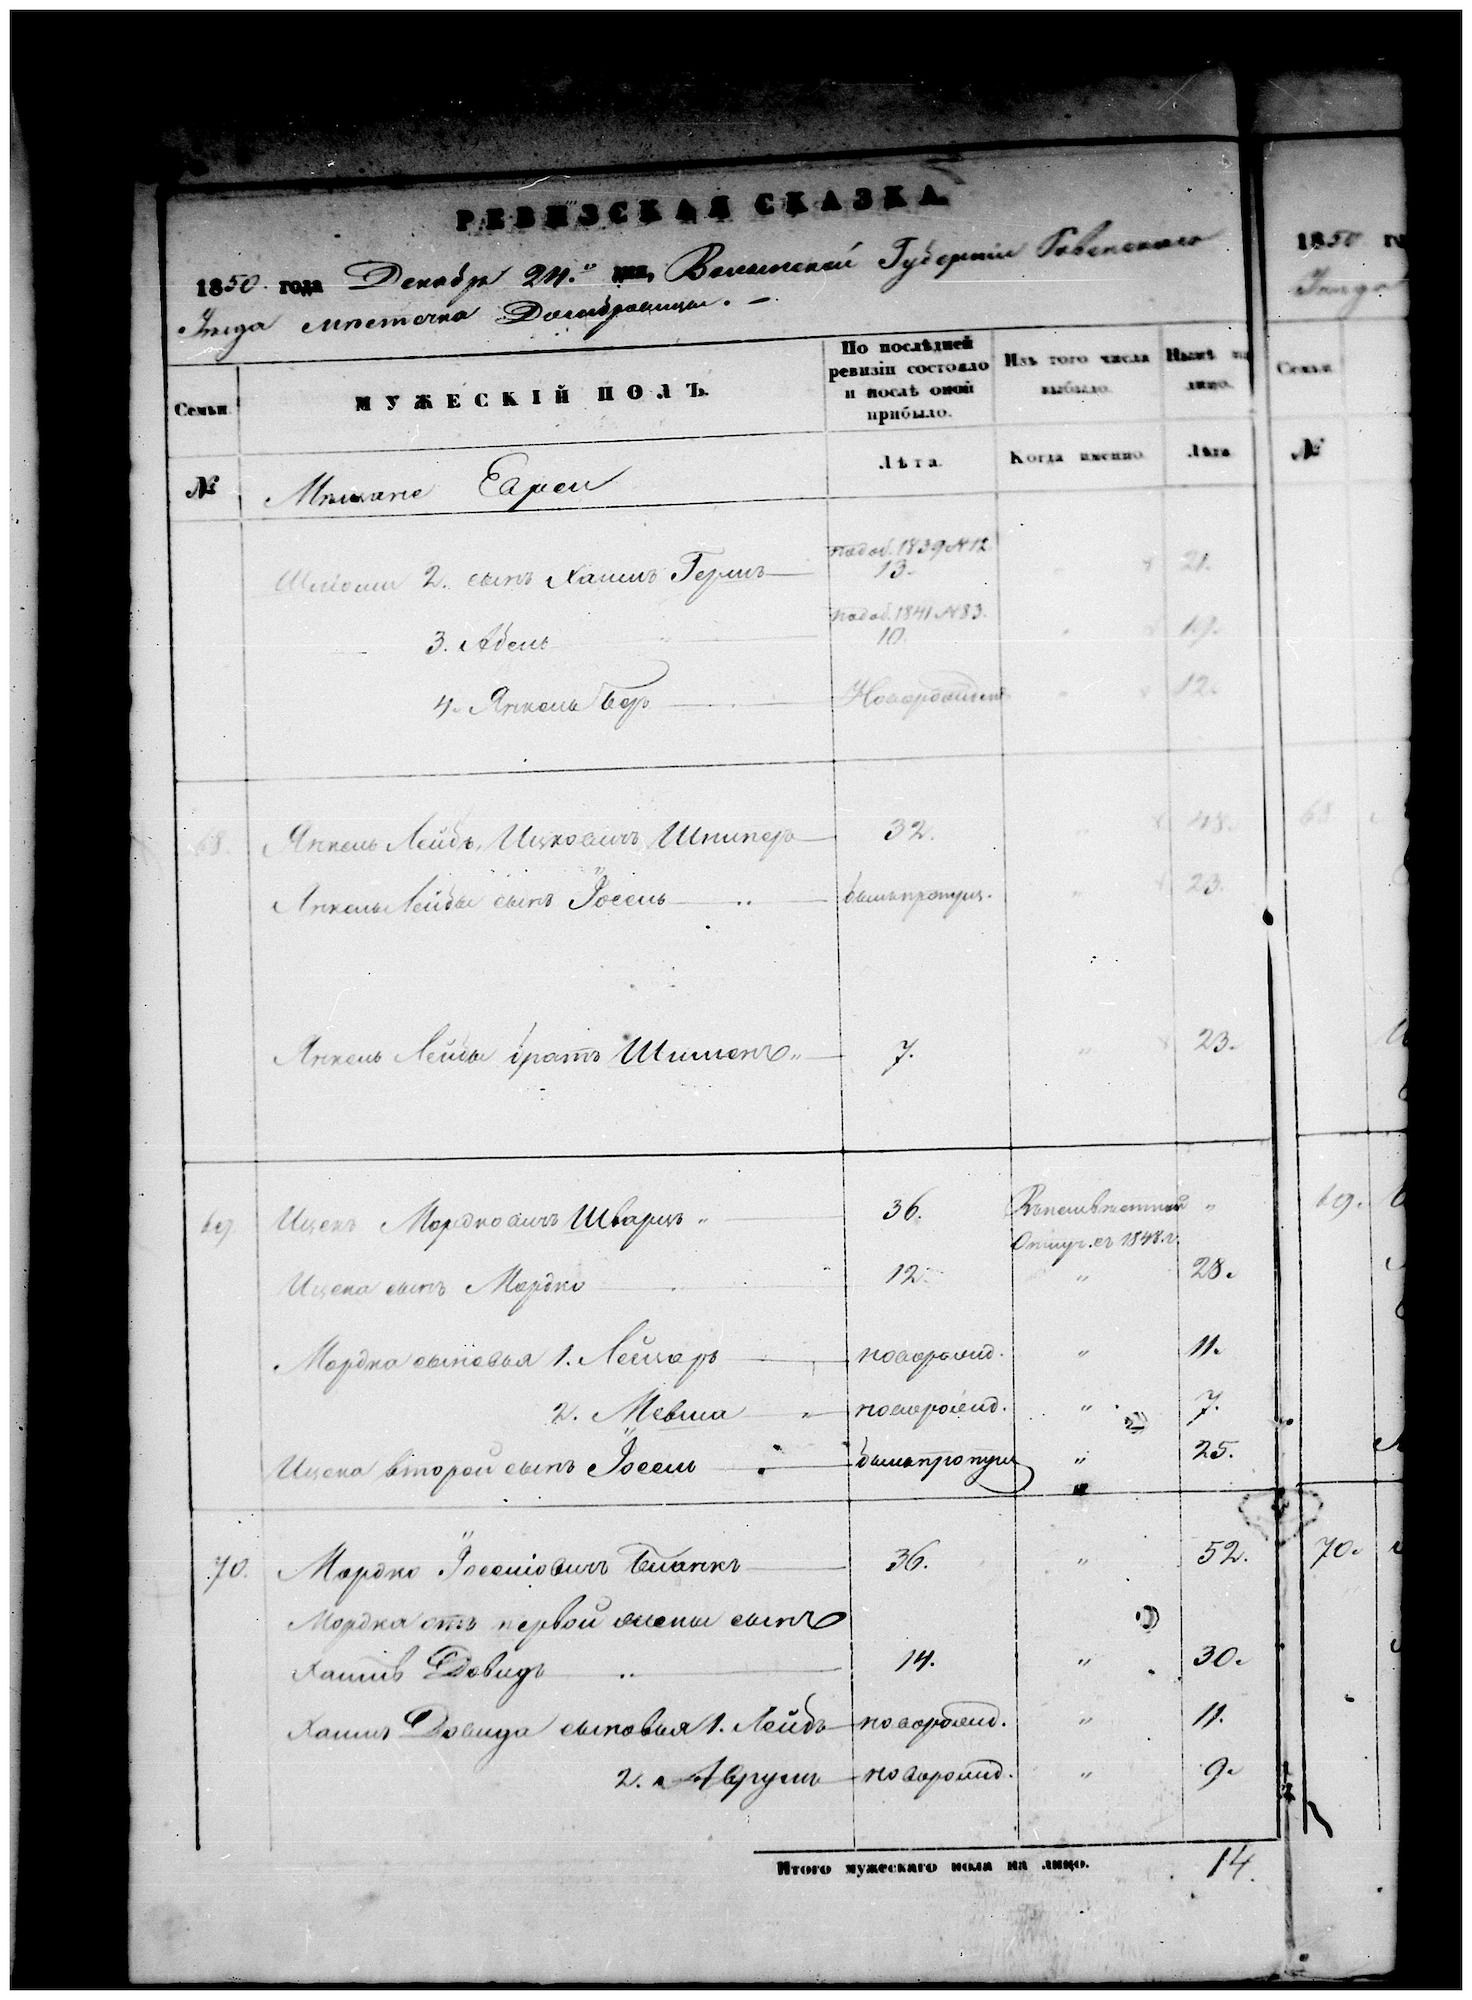 РЕВИЗСКАЯ СКАЗКА.
1850 года Декабря 24.го дня, Волынской Губерніи Ровенскаго
Уѣзда мѣстечка Домбровицы. –
Семьи. МУЖЕСКІЙ ПОЛЪ. По послѣдней ревизіи состояло и послѣ оной прибыло. Изъ того числа выбыло. Нынѣ на лицо.
№ Мѣщане Евреи Лѣта. Когда именно. Лѣта.
2. сынъ Хаимъ Гершъ 1839 № 12 13. " 21.
3. Абель 1841 № 83. 10. " 19.
4. Янкель Беръ Новорожденъ " 12.
68. Янкель Лейбъ Ицковичъ Шпилеръ 32. " 48.
Янкель Лейбы сынъ Іосель былъ пропущ. " 23.
Янкель Лейбы братъ Шименъ 7. " 23.
69. Ицекъ Мордковичъ Шварцъ 36. Въ неизвѣстной "
Отлуч. съ 1848.г.
Ицека сынъ Мордко 12. " 28.
Мордка сыновья 1. Лейзеръ новорожд. " 11.
2. Мевша новорожд. " 7.
Ицека второй сынъ Іосель былъ пропущ " 25.
70. Мордко Іоселіовичъ Бланкъ 36. " 52.
Мордка отъ первой жены сынъ
Хаимъ Довидъ 14. " 30.
Хаимъ Довида сыновья 1. Лейбъ новорожд. " 11.
2. Аврумъ новорожд. " 9.
Итого мужескаго пола на лицо. 14.
1850 го
Уѣзда
Семьи.
№
68.
69.
70.